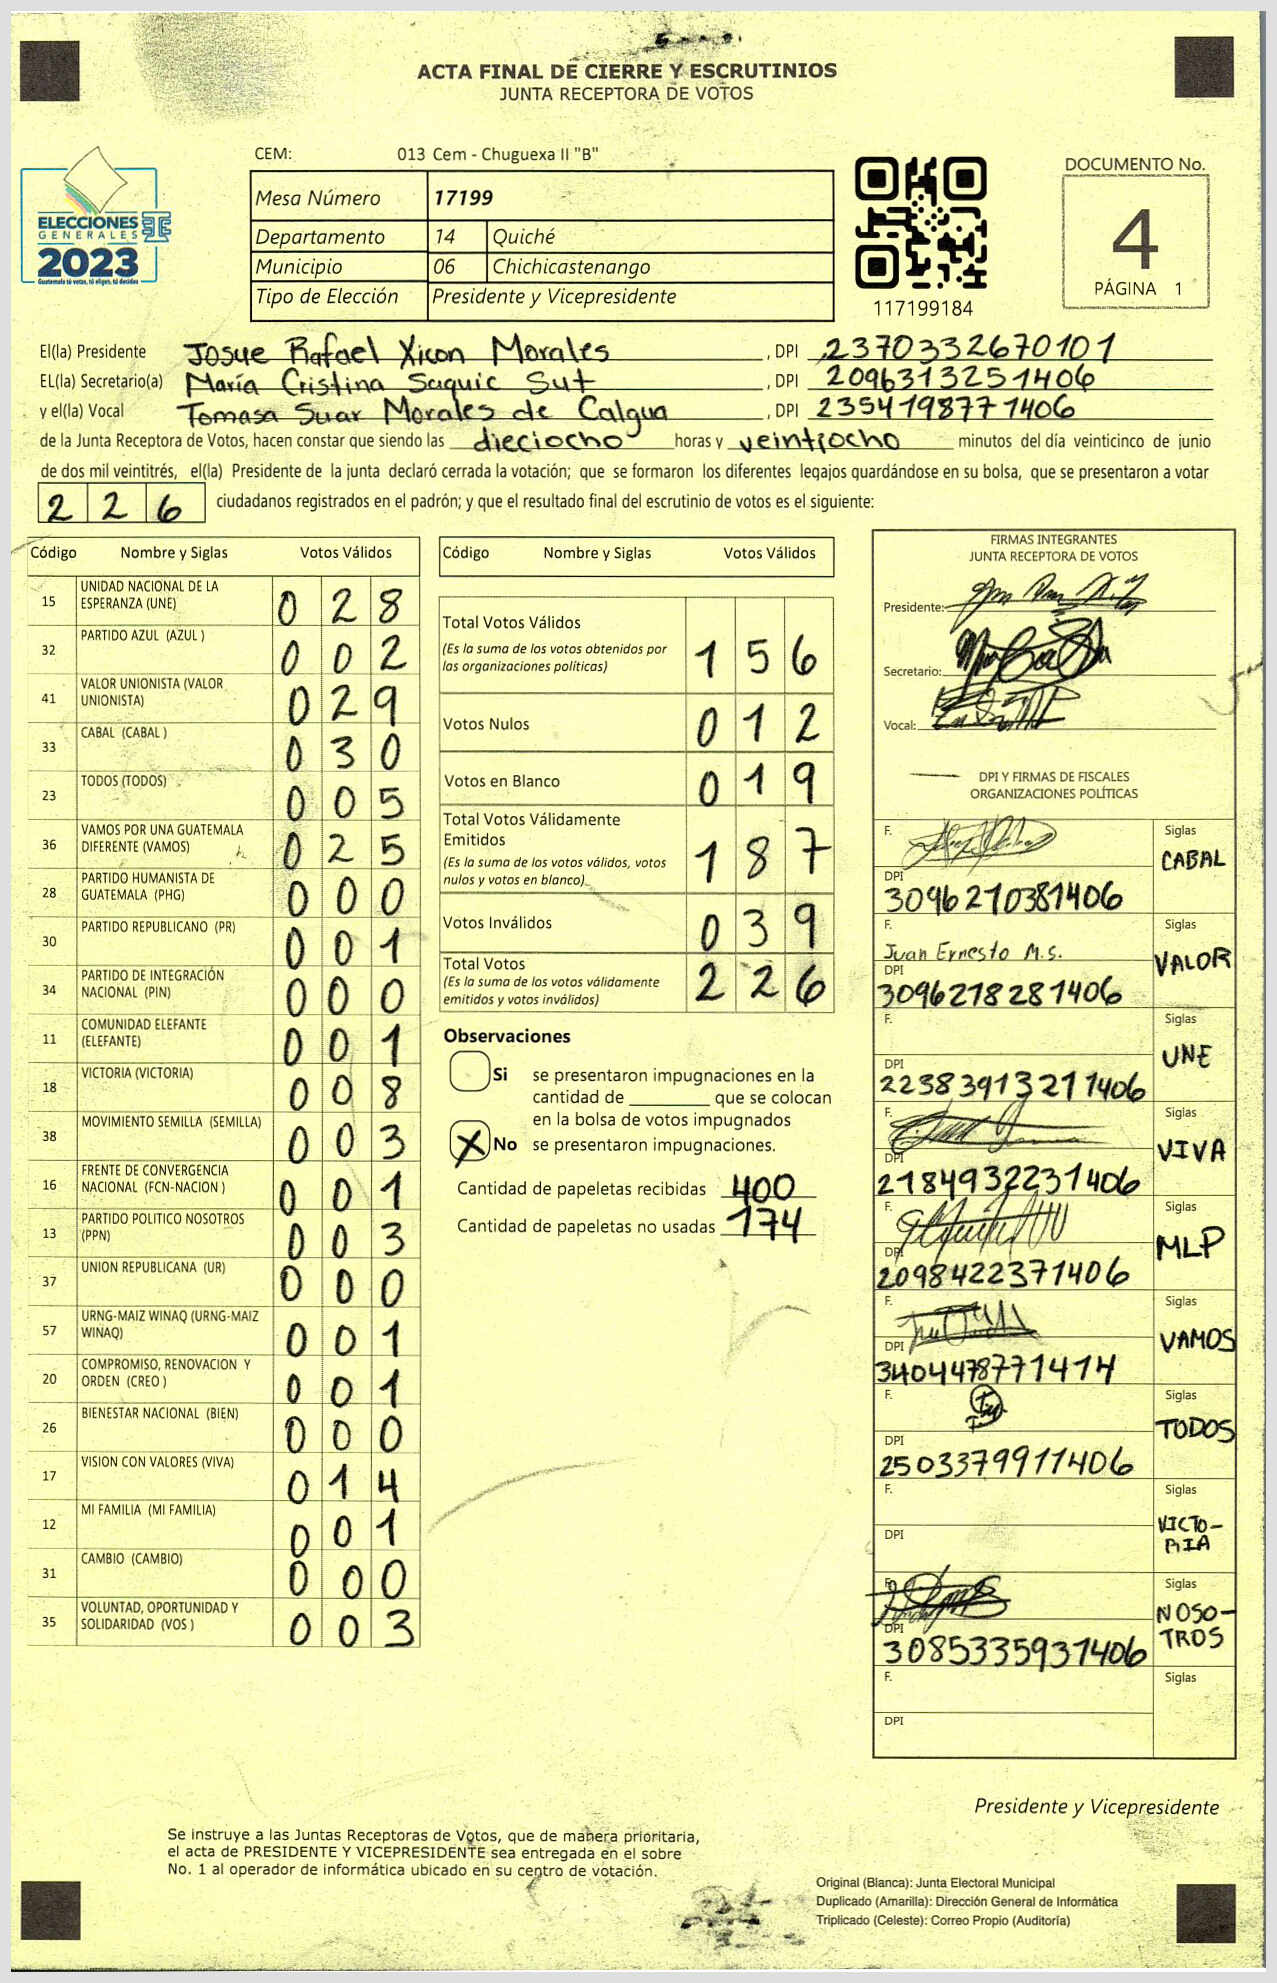 ACTA FINAL DE CIERRE Y ESCRUTINIOS
JUNTA RECEPTORA DE VOTOS
CEM: 013 Cem - Chuguexa II "B"
Mesa Número 17199
Departamento 14 Quiché
Municipio 06 Chichicastenango
Tipo de Elección Presidente y Vicepresidente
ELECCIONES
GENERALES
2023
Guatemala tú votas, tú eliges, tú decides
117199184
DOCUMENTO No.
4
PÁGINA 1
El(la) Presidente Josue Rafael Xicon Morales , DPI 2370332670101
EL(la) Secretario(a) María Cristina Saquic Sut , DPI 2096313251406
y el(la) Vocal Tomasa Suar Morales de Calgua , DPI 2354198771406
de la Junta Receptora de Votos, hacen constar que siendo las dieciocho horas y veintiocho minutos del día veinticinco de junio
de dos mil veintitrés, el(la) Presidente de la junta declaró cerrada la votación; que se formaron los diferentes legajos quardándose en su bolsa, que se presentaron a votar
226 ciudadanos registrados en el padrón; y que el resultado final del escrutinio de votos es el siguiente:
Código Nombre y Siglas Votos Válidos
15 UNIDAD NACIONAL DE LA ESPERANZA (UNE) 028
32 PARTIDO AZUL (AZUL ) 002
41 VALOR UNIONISTA (VALOR UNIONISTA) 029
33 CABAL (CABAL ) 030
23 TODOS (TODOS) 005
36 VAMOS POR UNA GUATEMALA DIFERENTE (VAMOS) 025
28 PARTIDO HUMANISTA DE GUATEMALA (PHG) 000
30 PARTIDO REPUBLICANO (PR) 001
34 PARTIDO DE INTEGRACIÓN NACIONAL (PIN) 000
11 COMUNIDAD ELEFANTE (ELEFANTE) 001
18 VICTORIA (VICTORIA) 008
38 MOVIMIENTO SEMILLA (SEMILLA) 003
16 FRENTE DE CONVERGENCIA NACIONAL (FCN-NACION ) 001
13 PARTIDO POLITICO NOSOTROS (PPN) 003
37 UNION REPUBLICANA (UR) 000
57 URNG-MAIZ WINAQ (URNG-MAIZ WINAQ) 001
20 COMPROMISO, RENOVACION Y ORDEN (CREO ) 001
26 BIENESTAR NACIONAL (BIEN) 000
17 VISION CON VALORES (VIVA) 014
12 MI FAMILIA (MI FAMILIA) 001
31 CAMBIO (CAMBIO) 000
35 VOLUNTAD, OPORTUNIDAD Y SOLIDARIDAD (VOS ) 003
Código Nombre y Siglas Votos Válidos
Total Votos Válidos
(Es la suma de los votos obtenidos por
las organizaciones políticas) 156
Votos Nulos 012
Votos en Blanco 019
Total Votos Válidamente
Emitidos
(Es la suma de los votos válidos, votos
nulos y votos en blanco) 187
Votos Inválidos 039
Total Votos
(Es la suma de los votos válidamente
emitidos y votos inválidos) 226
Observaciones
Si se presentaron impugnaciones en la
cantidad de ________ que se colocan
en la bolsa de votos impugnados
X No se presentaron impugnaciones.
Cantidad de papeletas recibidas 400
Cantidad de papeletas no usadas 174
FIRMAS INTEGRANTES
JUNTA RECEPTORA DE VOTOS
Presidente:
Secretario:
Vocal:
DPI Y FIRMAS DE FISCALES
ORGANIZACIONES POLÍTICAS
F. Siglas CABAL
DPI 3096210381406
F. Juan Ernesto M.S. Siglas VALOR
DPI 3096218281406
F. Siglas UNE
DPI 22383913211406
F. Siglas VIVA
DPI 2184932231406
F. Siglas MLP
DPI 2098422371406
F. Siglas VAMOS
DPI 3404478771414
F. Siglas TODOS
DPI 2503379911406
F. Siglas VICTO-
RIA
DPI
F. Siglas NOSO-
TROS
DPI 3085335931406
F. Siglas
DPI
Presidente y Vicepresidente
Se instruye a las Juntas Receptoras de Votos, que de manera prioritaria,
el acta de PRESIDENTE Y VICEPRESIDENTE sea entregada en el sobre
No. 1 al operador de informática ubicado en su centro de votación.
Original (Blanca): Junta Electoral Municipal
Duplicado (Amarilla): Dirección General de Informática
Triplicado (Celeste): Correo Propio (Auditoría)